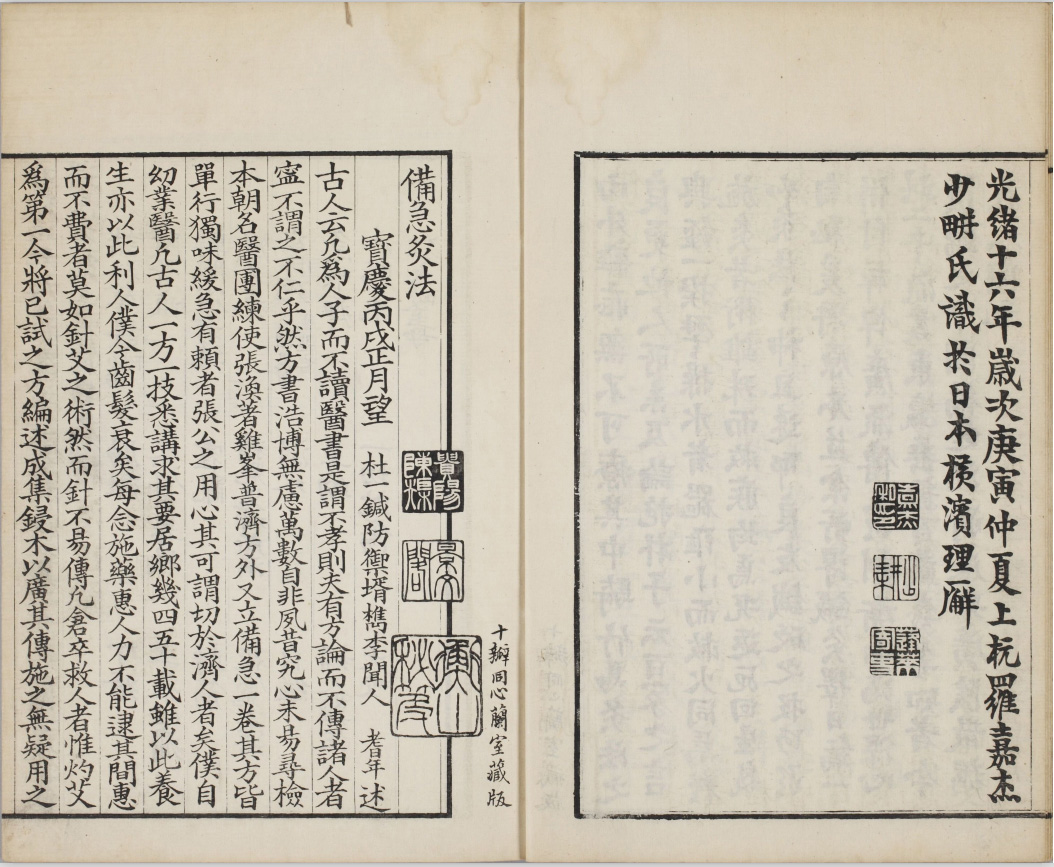 光緒十六年歲次庚寅仲夏上杭羅嘉杰
少畊氏識於日本橫濱理廨
十瓣同心蘭室藏版
備急灸法
寶慶丙戌正月望 杜一鍼防禦壻檇李聞人 耆年述
古人云凢爲人子而不讀醫書是謂不孝則夫有方論而不傳諸人者
寧不謂之不仁乎然方書浩博無慮萬數自非夙昔究心未易尋檢
本朝名醫團練使張渙著雞峯普濟方外又立備急一卷其方皆
單行獨味緩急有賴者張公之用心其可謂切於濟人者矣僕自
幼業醫凢古人一方一技悉講求其要居鄉幾四五十載雖以此養
生亦以此利人僕今齒髮衰矣每念施藥惠人力不能逮其間惠
而不費者莫如針艾之術然而針不易傳凢倉卒救人者惟灼艾
爲第一今將已試之方編述成集鋟木以廣其傳施之無疑用之